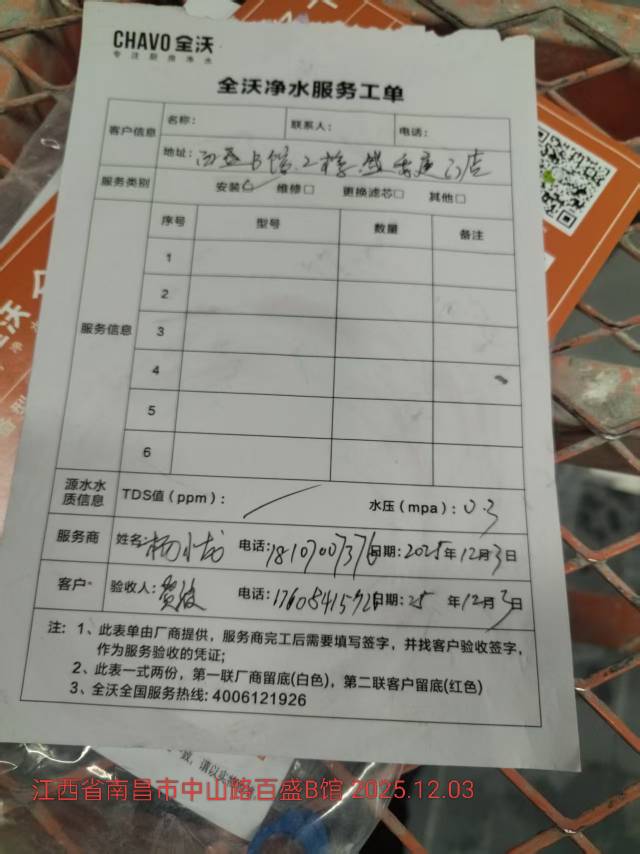 CHAVO 全沃
专注厨房净水
全沃净水服务工单
客户信息
名称：
联系人：
电话：
地址：百盛B馆2楼
服务类别
安装☑ 维修□ 更换滤芯□ 其他□
服务信息
序号 型号 数量 备注
1
2
3
4
5
6
源水水质信息
TDS值（ppm）： / 水压（mpa）：0.3
服务商
姓名：杨小龙 电话：1810700737 日期：2025年12月3日
客户
验收人： 电话：1760841572 日期：25年12月3日
注：1、此表单由厂商提供，服务商完工后需要填写签字，并找客户验收签字，
作为服务验收的凭证；
2、此表一式两份，第一联厂商留底(白色)，第二联客户留底(红色)
3、全沃全国服务热线：4006121926
全沃
江西省南昌市中山路百盛B馆 2025.12.03